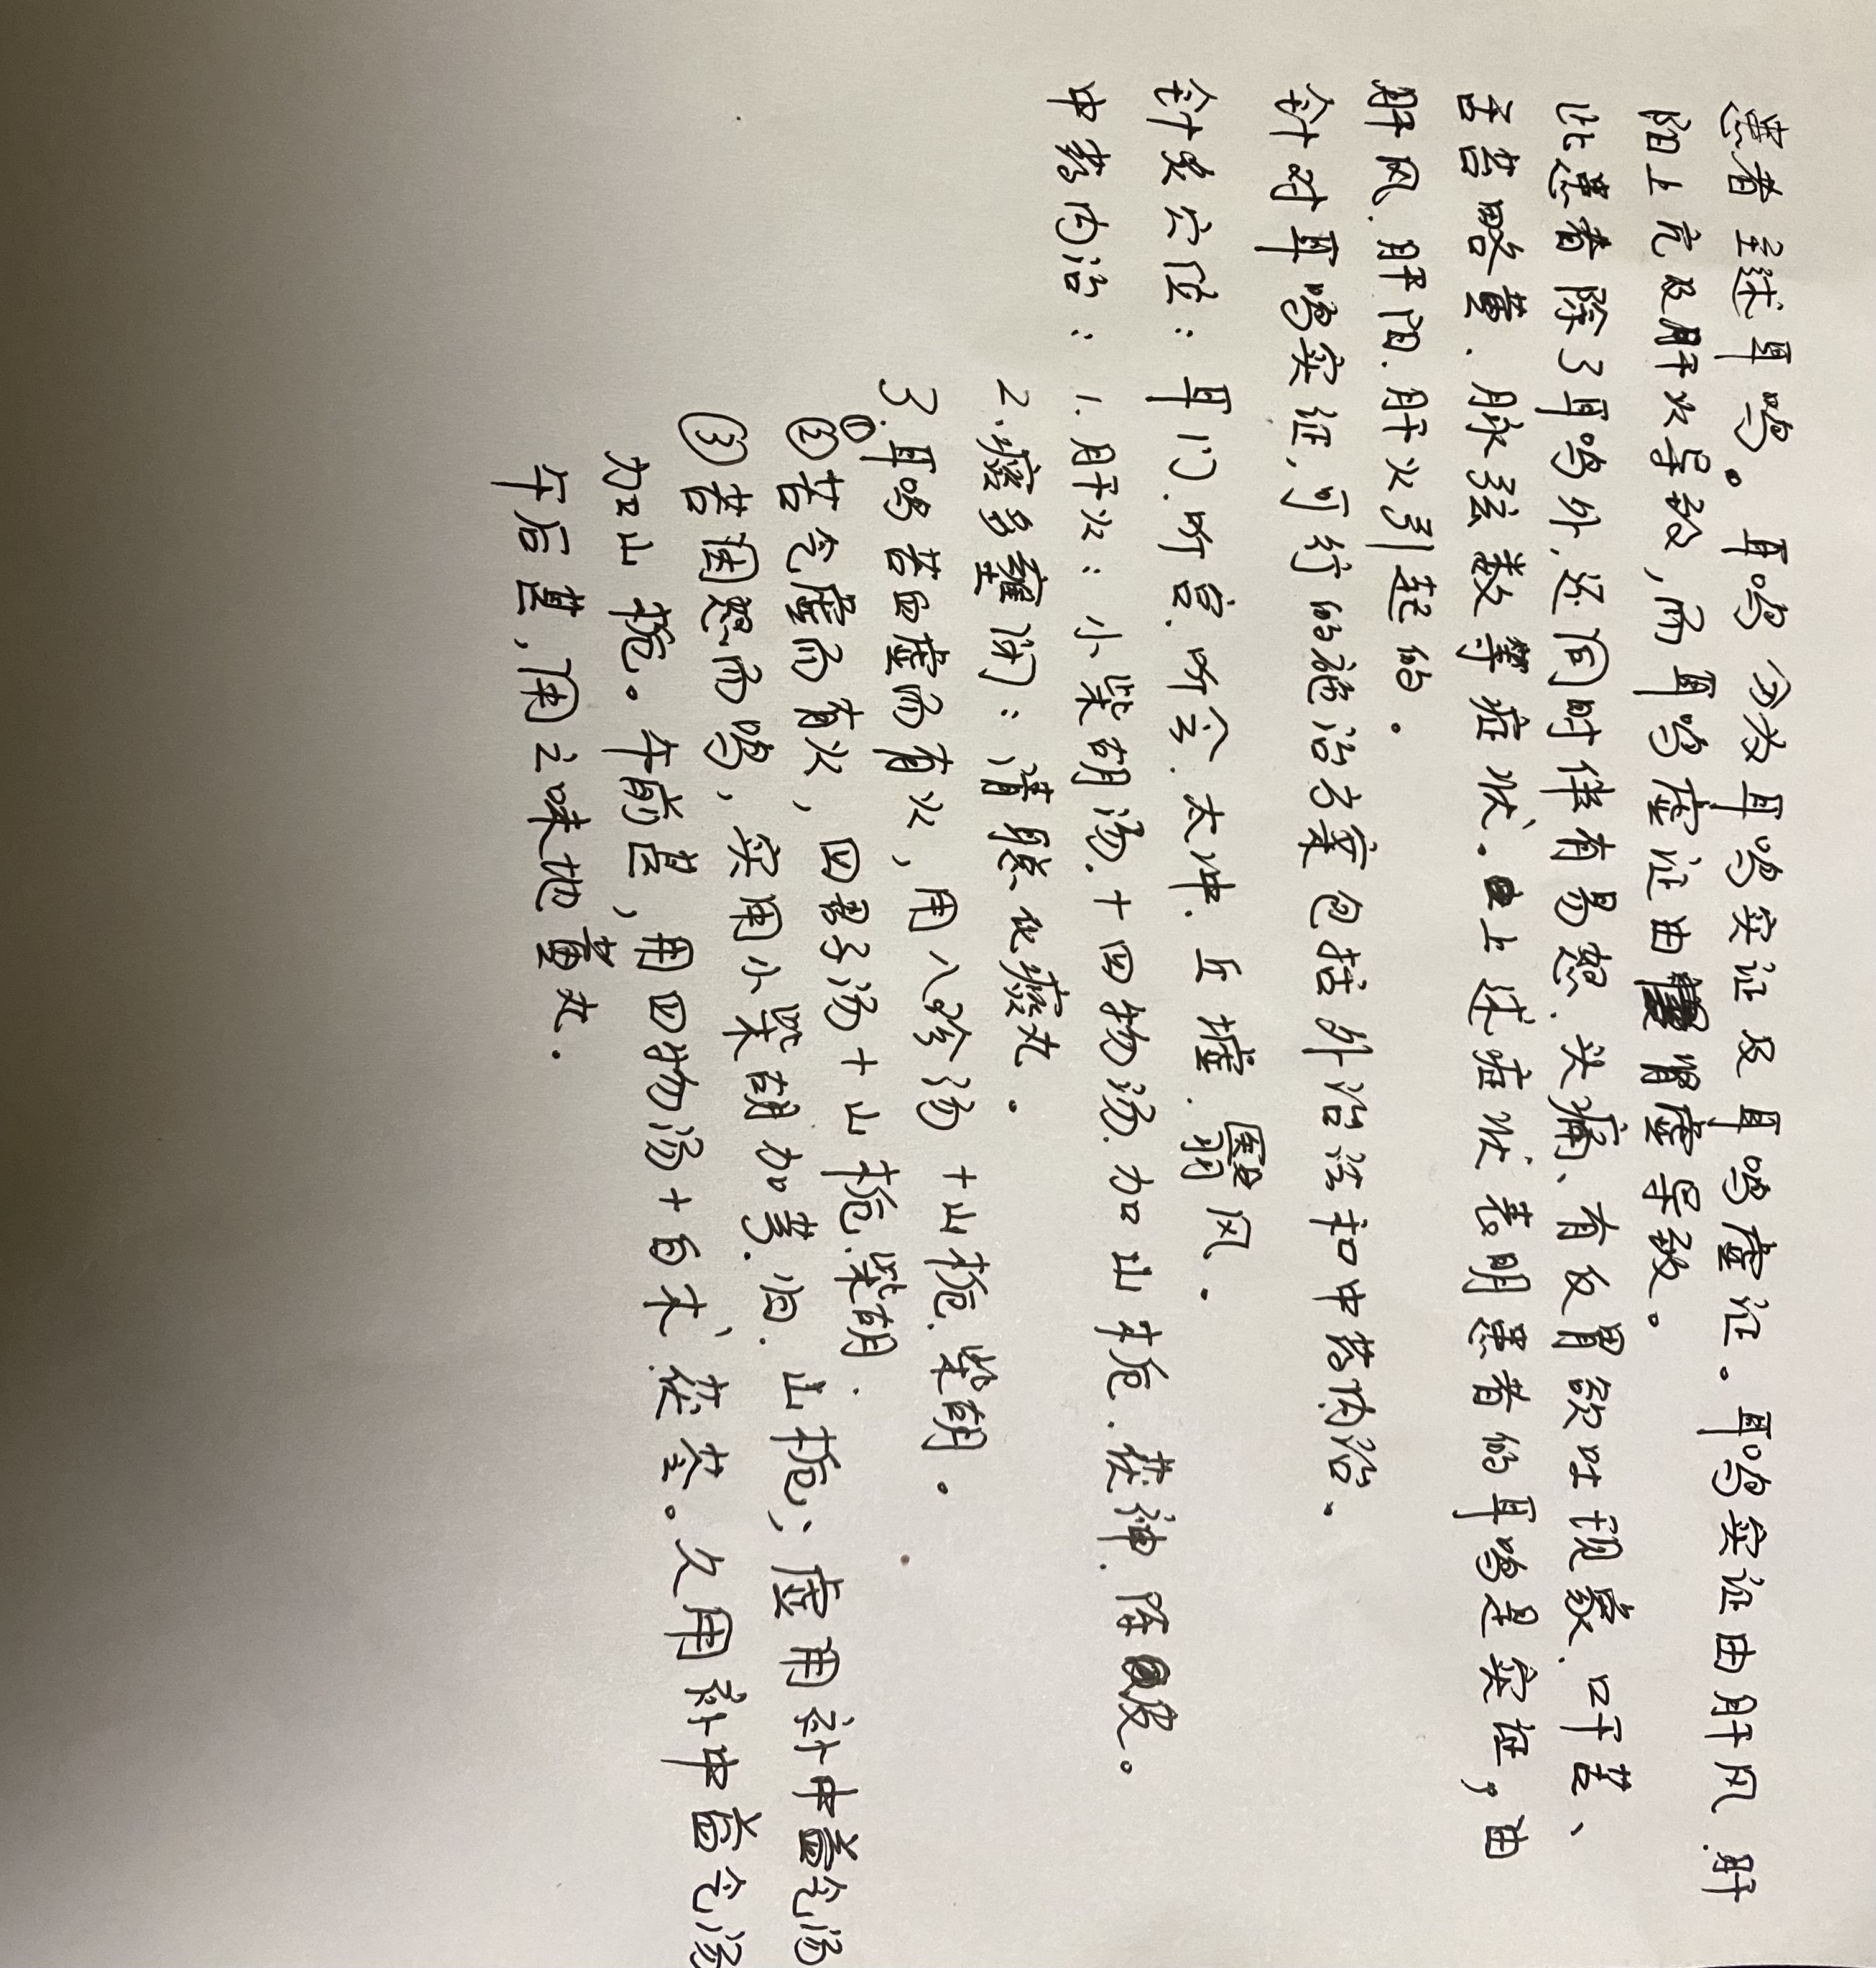 患者主述耳鸣。耳鸣分为耳鸣实证及耳鸣虚证。耳鸣实证由肝风.肝
阳上亢及肝火导致,而耳鸣虚证由肾虚导致。
此患者除了耳鸣外,还同时伴有易怒.头痛、有反胃欲吐现象.口干苦、
舌苔略黄.脉弦数等症状.上述症状表明患者的耳鸣是实证,由
肝风.肝阳.肝火引起的.
针对耳鸣实证,可行的施治方案包括外治法和中药内治.
针灸穴位:耳门.听宫.听会.太冲.丘墟.翳风.
中药内治:1.肝火:小柴胡汤.十四物汤.加山栀.茯神.陈皮。
2.痰多壅闭:清聪化痰丸.
3.①耳鸣若血虚而有火,用八珍汤+山栀.柴胡.
②若气虚而有火,四君子汤+山栀.柴胡.
③若因怒而鸣,实用小柴胡加芎.归.山栀;虚用补中益气汤
加山栀。午前甚,用四物汤+白术、茯苓。久用补中益气汤
午后甚,用地黄丸.